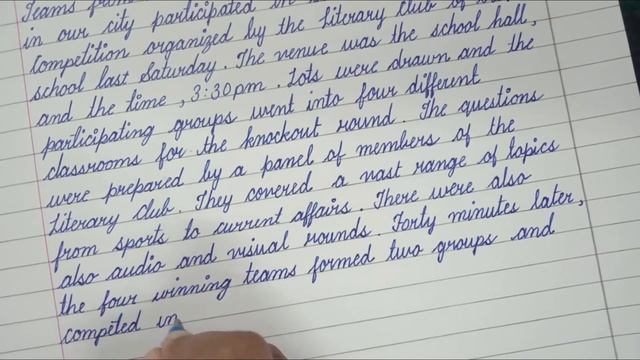 Teams from
in our city participated in
competition organized by the Literary Club of
school last Saturday. The venue was the school hall,
and the time, 3:30pm. Lots were drawn and the
participating groups went into four different
classrooms for the knockout round. The questions
were prepared by a panel of members of the
Literary Club. They covered a vast range of topics
from sports to current affairs. There were also
also audio and visual rounds. Forty minutes later,
the four winning teams formed two groups and
competed in